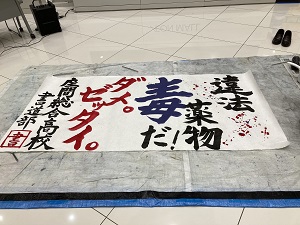 違法
薬物
毒だ!
ダメ。
ゼッタイ。
座間総合高校
書道部
書